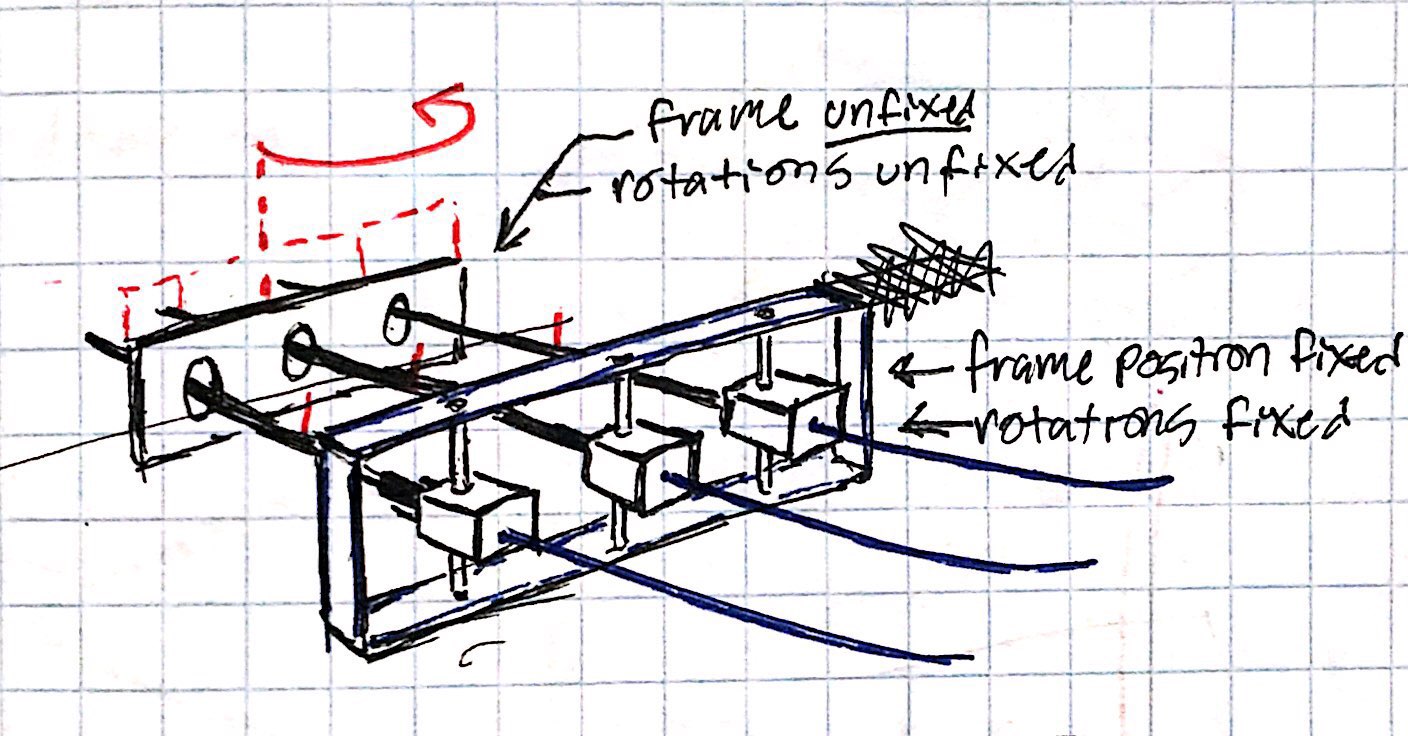 frame unfixed
rotations unfixed
frame position fixed
rotations fixed